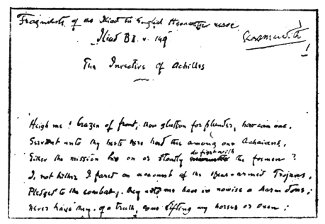 Fragments of an Iliad in English Hexameter verse
Iliad B I. v. 149
The Invective of Achilles
Heigh me! brazen of front, thou glutton for plunder, how can one,
Servant unto thy hests here but the among our Achaians,
Either the mission hie on or stoutly do fight with the foemen?
I, not hither I fared on account of the spear-armèd Trojans,
Pledged to the combat; they unto me have in nowise a harm done;
Never have they, of a truth, come lifting my horses or oxen;